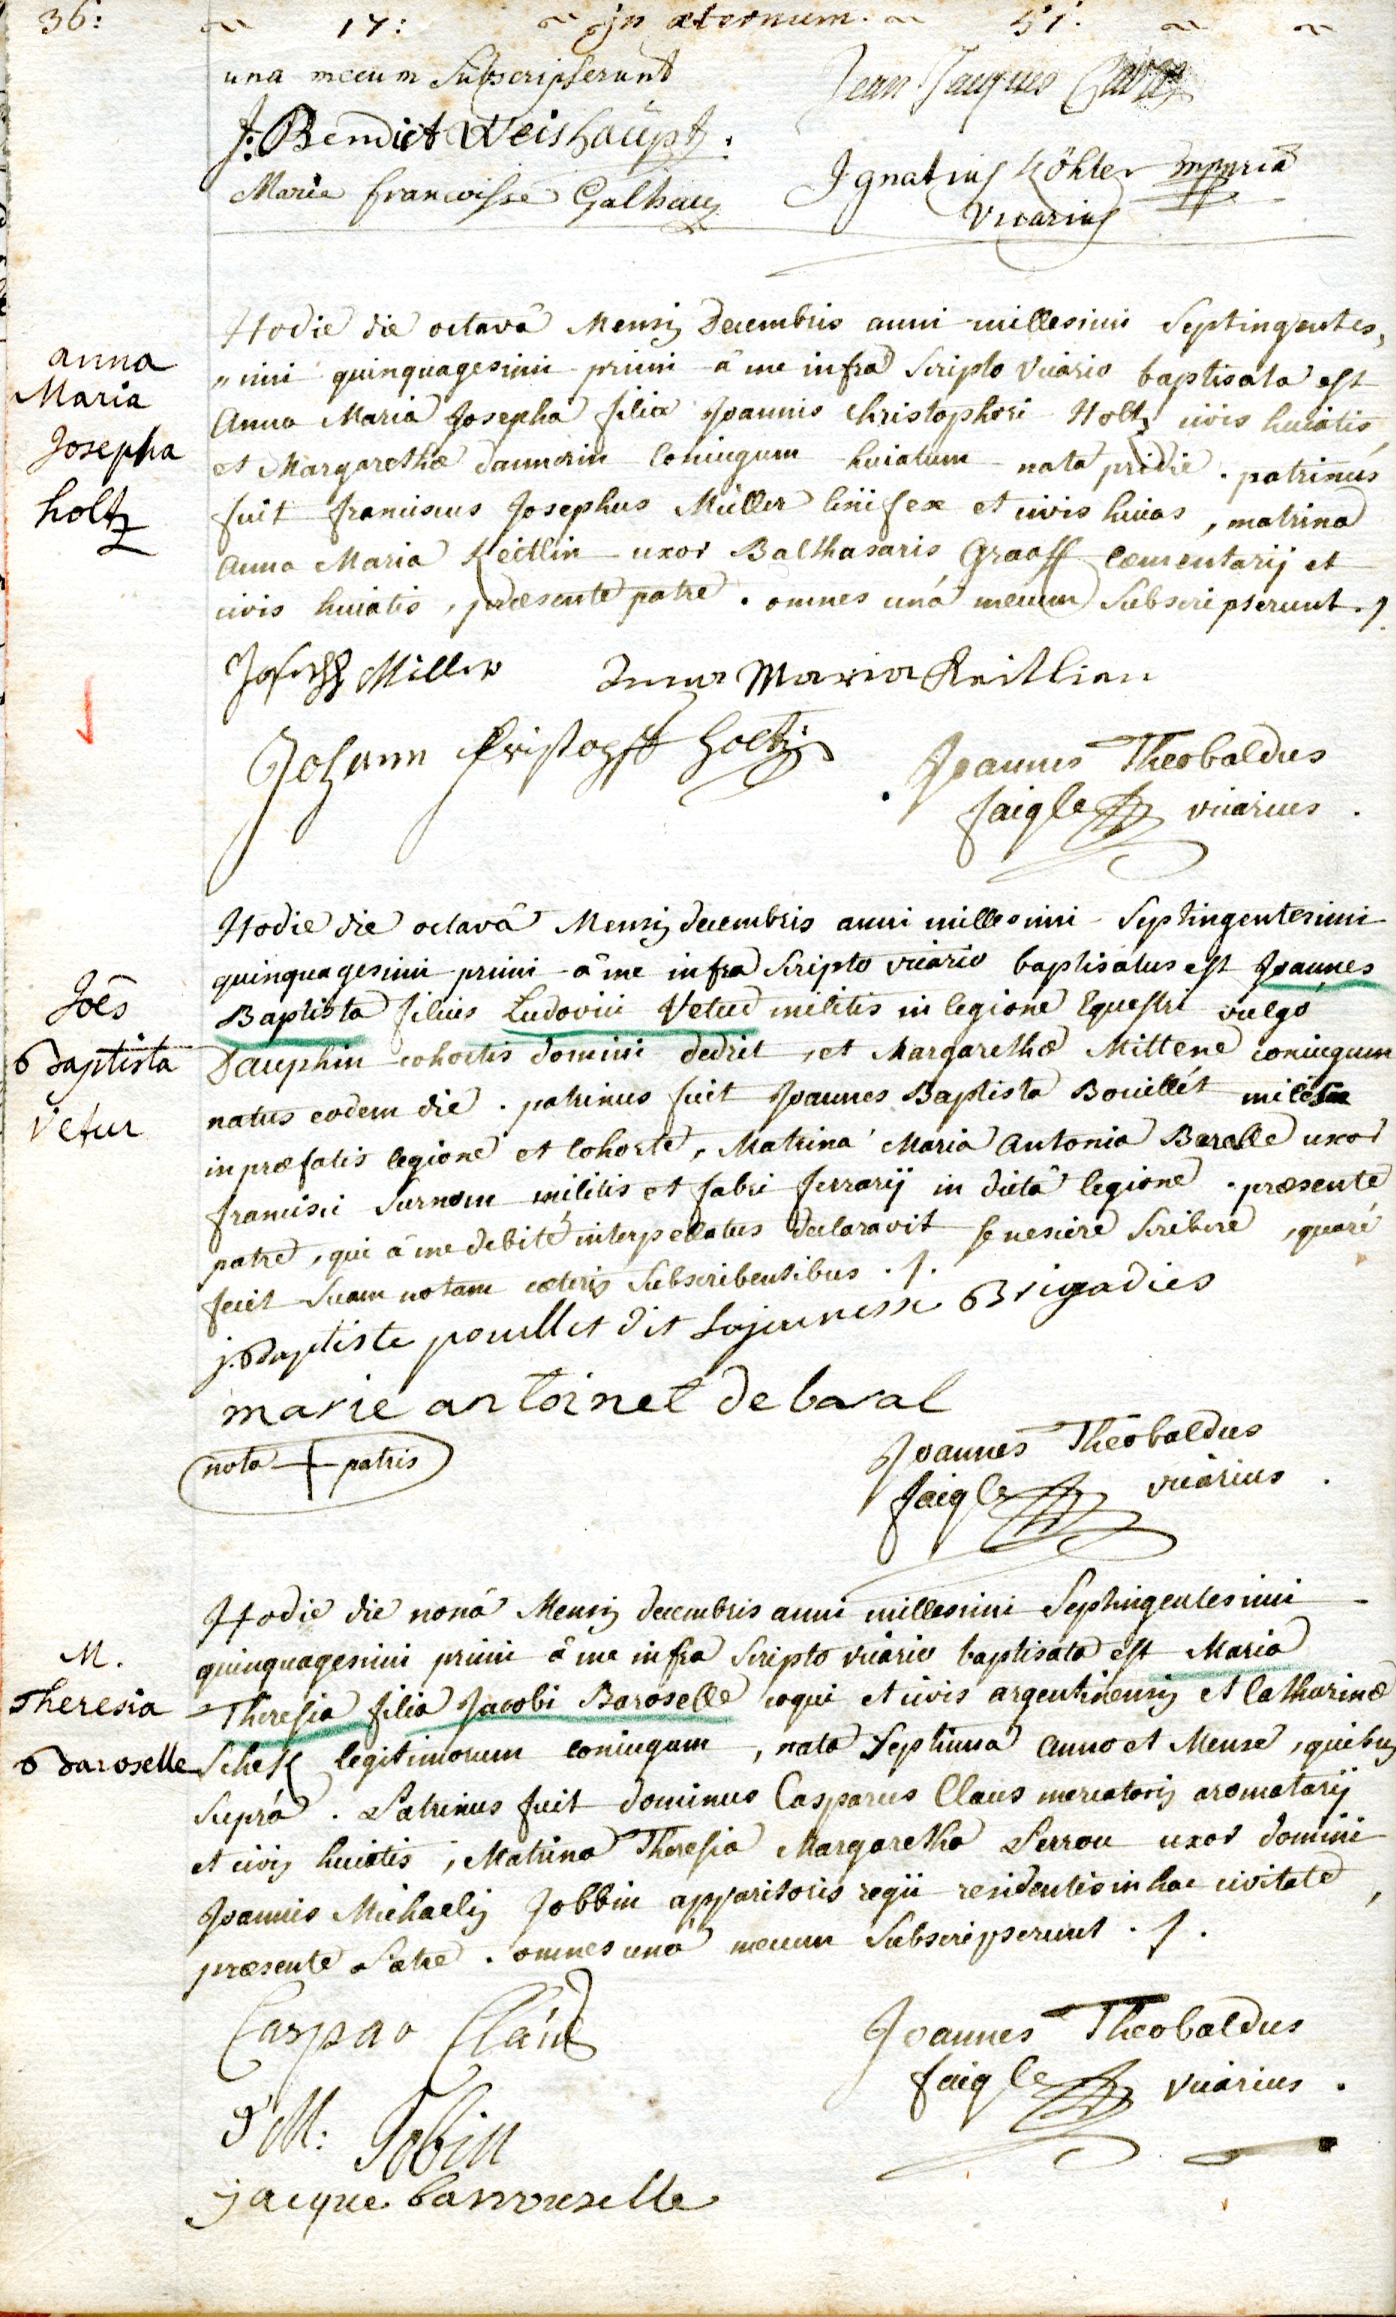 36: 17: Jn æternum. 51.
una mecum Subscripserunt
Jean Jacques
J: Bendict Weishaupt.
Ignatius Köhler mppria
Marie francoisse Galhauz
Vicarius
Hodie die octavâ Mensis Decembris anni millesimi Septingentes,
anna
Maria
Josepha
holtz
„imi quinquagesimi primi â me infra Scripto Vicario baptisata est
Anna Maria Josepha filia Joannis Christophori Holtz civis huiatis
et Margarethæ daumerin Coniugum huiatum nata pridie. patrinus
fuit franciscus Josephus Müller linifex et civis huias, matrina
Anna Maria Keitlin uxor Balthasaris Graaff Cæmentarij et
civis huiatis, præsente patre. omnes unâ mecum Subscripserunt. /.
Joseph Miller Anna Maria Keitlien
Johann Cristopff Holtz
Joannes Theobaldus
faigle vicarius.
Hodie die octavâ Mensis decembris anni millesimi Septingentesimi
Joês
Baptista
Vetur
quinquagesimi primi â me infra Scripto vicario baptisatus est Joannes
Baptista filius Ludovici Vetud militis in legione Equestri vulgo
Dauphin cohortis domini dedrit, et Margarethæ Mittene coniugum
natus eodem die. patrinus fuit Joannes Baptista Bouillét miles
in præfatis legione et Cohorte, Matrina Maria Antonia Baralle uxor
francisci Surnom militis et fabri ferrarij in dictâ legione. præsente
patre, qui â me debite interpellatus declaravit se nescire Scribere, quare
fecit Suam notam cæteris Subscribentibus. /.
j. Baptiste poulllet dit Lajeunesse Brigadies
marie antoinet de baral
nota + patris
Joannes Theobaldus
faigle vicarius.
Hodie die nonâ Mensis decembris anni millesimi Septingentesimi
M.
Theresia
Baroselle
quinquagesimi primi â me infra Scripto vicario baptisata est Maria
Theresia filia Jacobi Baroselle coqui et civis argentinensis et Catharinæ
Schek legitimorum coniugum, nata Septima anno et Mense, quibus
Suprá. Patrinus fuit dominus Casparus Claus mercatoris aromatarij
et civis huiatis, Matrina Theresia Margaretha Perrou uxor domini
Joannis Michaelis Jobbin apparitoris regii residentis in hac civitate,
præsente Patre. omnes una mecum Subscripserunt. /.
Caspar Claus
Joannes Theobaldus
faigle vicarius.
J M: Jobin
jacque barrouselle